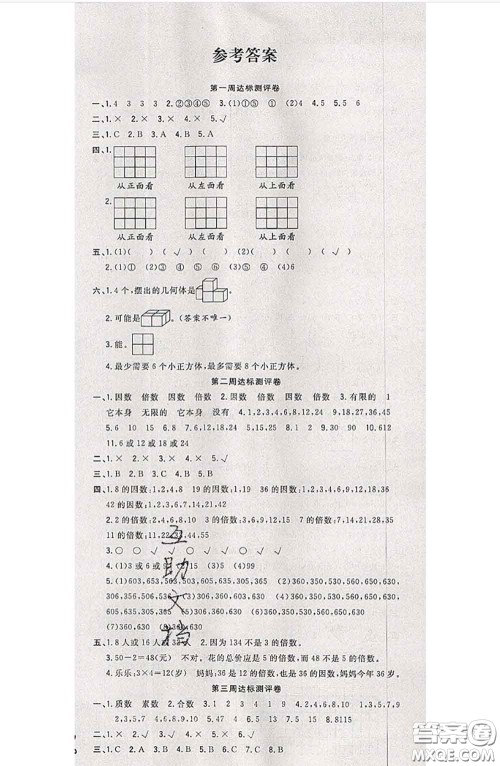 参考答案
第一周达标测评卷
一、1.4 3 3 3 2.②③④⑤ 3.(1)①⑤ (2)4 4.5 5.6
二、1.× 2.× 3.√ 4.× 5.√
三、1.C 2.A 3.B 4.B 5.A
四、1.
从正面看 从左面看 从上面看
2.
从正面看 从左面看 从上面看
五、1.(1)( ) ( √ ) ( ) (2)( ) ( ) ( √ )
2.(1)① ③ ④ ⑤ ⑥ (2)① ⑤ (3)① (4)6
六、1.4个,摆出的几何体是
2.可能是 。(答案不唯一)
3.能、
4.最少需要6个小正方体,最多需要8个小正方体。
第二周达标测评卷
一、1.因数 倍数 因数 倍数 2.因数 倍数 因数 倍数 3.有限的 1
它本身 无限的 它本身 没有 4.1,2,3,4,6,8,12,24 9,18,27,36,45
5.6 10 15 6.8 7.1 29 29 8.0 5 9.90 990 120 10.9,12
11.6或12或18或24
二、1.× 2.× 3.× 4.× 5.√
三、1.B 2.A 3.C 4.A 5.B
四、1.8的因数:1,2,4,8 19的因数:1,19 36的因数:1,2,3,4,6,9,12,18,36
42的因数:1,2,3,6,7,14,21,42
2.2的倍数:2,4,6,8,10 3的倍数:3,6,9,12,15 7的倍数:7,14,21,28,35
11的倍数:11,22,33,44,55
3.○ ○ ○ √ √ ○ √ √
4.(1)3或6或9 (2)15 (3)75 (4)90 (5)99
5.(1)603,653,305,503,563,365,635 (2)306,350,530,360,560,650,630,
306,356,506,536,560,630 (3)350,360,530,560,630,650 (4)306,360,630,
603,630 (5)350,360,530,560,630,650 (6)306,360,630
(7)360,630 (8)360,630
五、1.8人或16人 2.因为134不是3的倍数。
3.50-2=48(元) 不对。花的总价应是5的倍数,而48不是5的倍数。
4.乐乐:3×4=12(岁) 妈妈:12是6、9的倍数,所以妈妈今年36岁。
第三周达标测评卷
一、1.质数 素数 2.合数 3.1,2,3,4,5,6,7,8,9,10 1,3,5,7,9
2,4,6,8,10 2,3,5,7 4,6,8,9,10 4.20 5.14 6.15 7.58 8.8115
二、1.× 2.× 3.× 4.√ 5.√
三、1.B 2.C 3.A 4.C 5.C 6.C 7.C 8.C 9.B
互助文档
答案圈
MXQE.COM